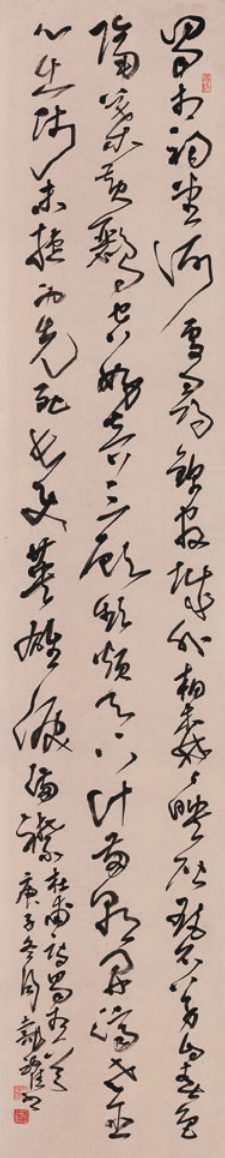 蜀相祠堂何處尋錦官城外柏森森映階碧草自春色
隔葉黃鸝空好音三顧頻煩天下計兩朝開濟老臣
心出師未捷身先死長使英雄淚滿襟
杜甫詩蜀相
庚子冬月